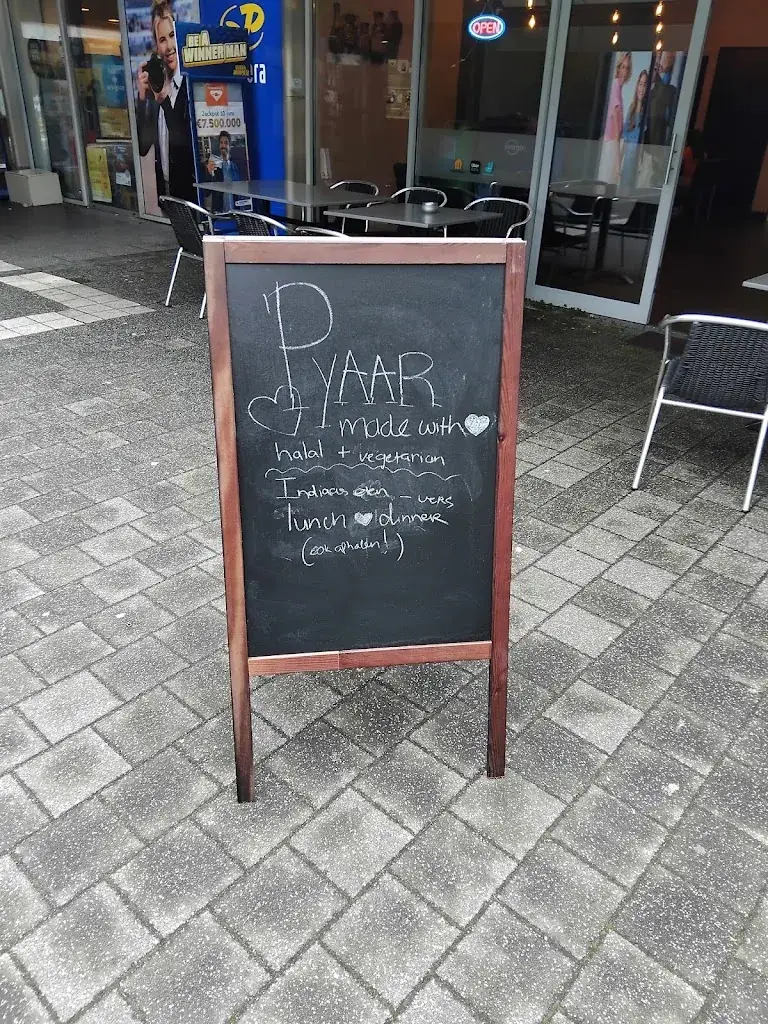 BE A
WINNER MAN
ra
Jackpot 10 juni
€7.500.000
OPEN
PYAAR
made with
halal + vegetarian
Indiaas eten - vers
lunch dinner
(ook afhalen!)